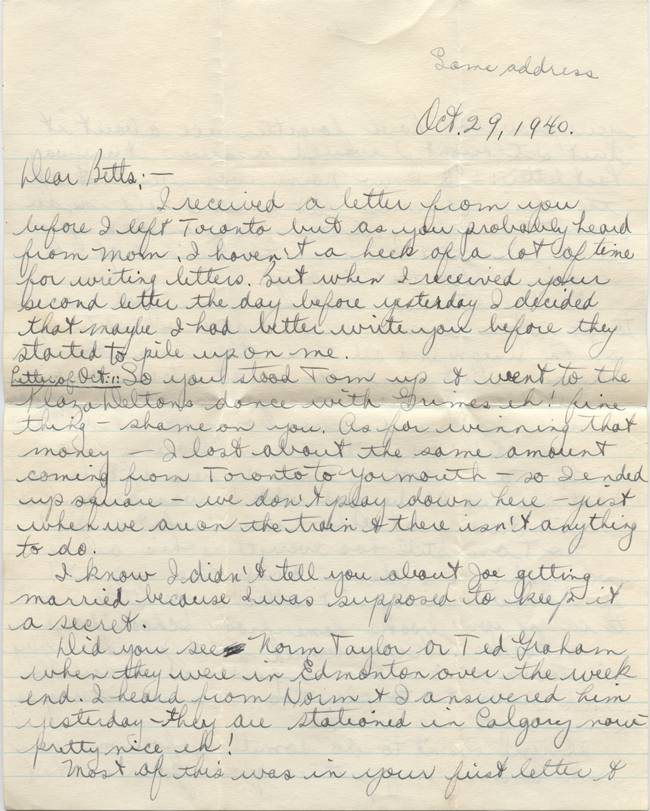 Same address
Oct. 29, 1940.
Dear Betts; —
I received a letter from you
before I left Toronto but as you probably heard
from Mom, I haven't a heck of a lot of time
for writing letters. But when I received your
second letter the day before yesterday I decided
that maybe I had better write you before they
started to pile up on me.
Letter of Oct::: So you stood Tom up & went to the
Plaza Deltons dance with Grimes eh! fine
thing - shame on you. As for winning that
money — I lost about the same amount
coming from Toronto to Yarmouth - so I ended
up square - we don't play down here - just
when we are on the train & there isn't anything
to do.
I know I didn't tell you about Joe getting
married because I was supposed to keep it
a secret.
Did you see Norm Taylor or Ted Graham
when they were in Edmonton over the week
end. I heard from Norm & I answered him
yesterday - they are stationed in Calgary now -
pretty nice eh!
Most of this was in your first letter &